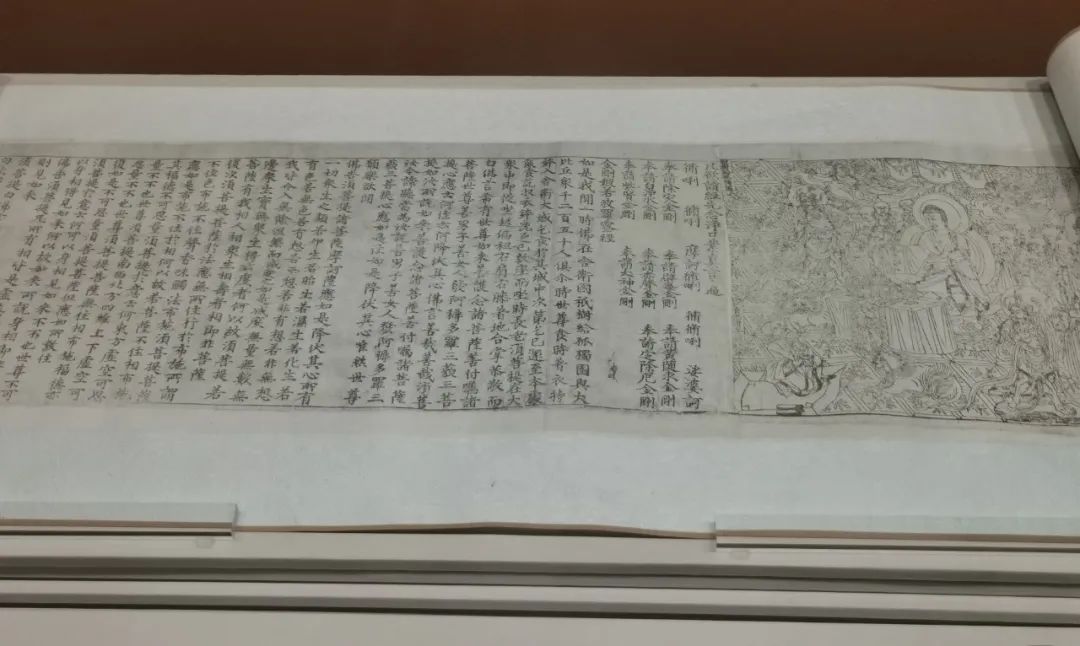 凡欲讀經先念淨口業真言一遍
脩唎 脩唎 摩訶脩唎 脩脩唎 娑婆訶
奉請除灾金剛 奉請辟毒金剛 奉請黃隨求金剛
奉請白淨水金剛 奉請赤聲金剛 奉請定除厄金剛
奉請紫賢金剛 奉請大神金剛
金剛般若波羅蜜經
如是我聞一時佛在舍衛國祇樹給孤獨園與大
比丘衆千二百五十人俱尒時世尊食時著衣持
鉢入舍衛大城乞食於其城中次第乞已還至本處
飯食訖收衣鉢洗足已敷座而坐時長老湏菩提在大
衆中即從座起偏袒右肩右膝著地合掌恭敬而
白佛言希有世尊如來善護念諸菩薩善付囑諸
菩薩世尊善男子善女人發阿耨多羅三藐三菩
提心應云何住云何降伏其心佛言善哉善哉湏菩
提如汝所說如來善護念諸菩薩善付囑諸菩薩
汝今諦聽當為汝說善男子善女人發阿耨多羅三
藐三菩提心應如是住如是降伏其心唯然世尊
願樂欲聞
佛告湏菩提諸菩薩摩訶薩應如是降伏其心所有
一切衆生之類若卵生若胎生若濕生若化生若
有色若無色若有想若無想若非有想若非無想
我皆令入無餘涅槃而滅度之如是滅度無量無數無
邊衆生實無衆生得滅度者何以故湏菩提若
菩薩有我相人相衆生相壽者相即非菩薩
復次湏菩提菩薩於法應無所住行於布施所謂
不住色布施不住聲香味觸法布施湏菩提菩薩
應如是布施不住於相何以故若菩薩不住相布施
其福德不可思量湏菩提於意云何東方虛空可思
量不不也世尊湏菩提南西北方四維上下虛空可
思量不不也世尊湏菩提菩薩無住相布施福德亦
復如是不可思量湏菩提菩薩但應如所教住
湏菩提於意云何可以身相見如來不不也世尊不可
以身相得見如來何以故如來所說身相即
佛告湏菩提凡所有相皆是虛
則見如來